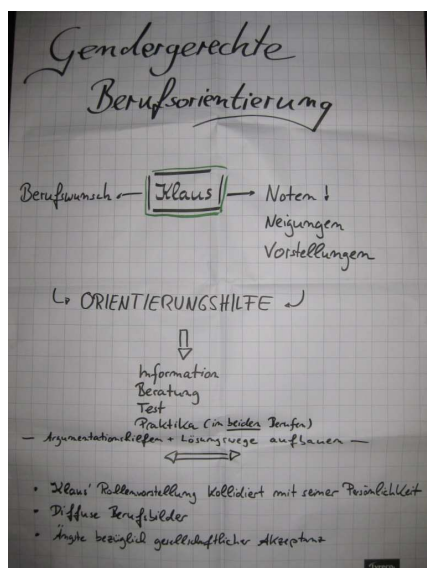 Gendergerechte
Berufsorientierung
Berufswunsch ← Klaus → Noten!
Neigungen
Vorstellungen
↳ ORIENTIERUNGSHILFE ↲
⇓
Information
Beratung
Test
Praktika (in beiden Berufen)
— Argumentationshilfen + Lösungswege aufbauen —
⟺
• Klaus' Rollenvorstellung kollidiert mit seiner Persönlichkeit
• Diffuse Berufsbilder
• Ängste bezüglich gesellschaftlicher Akzeptanz